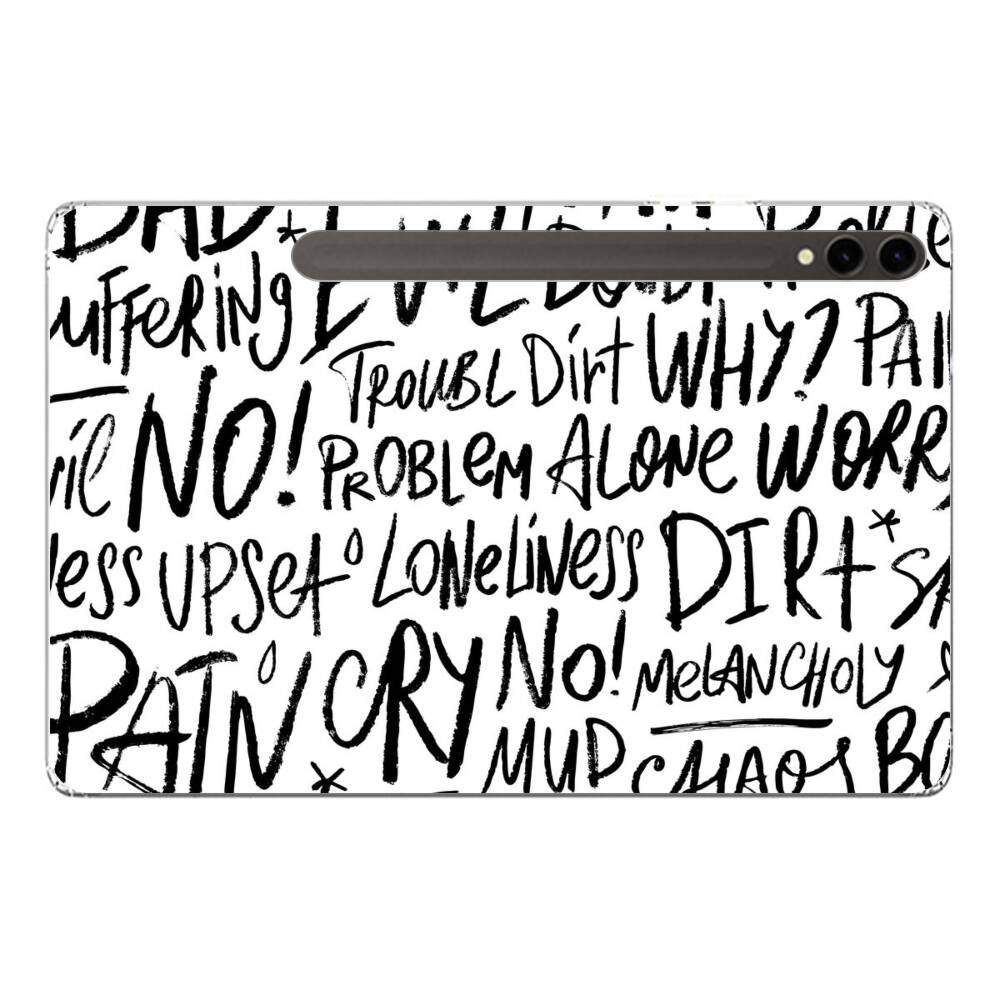 BAD*
UFFERiNg EVIL DOUBT
TROUBL DirT WHY? PAI
vil NO! PROBLEM ALONE WORR
less UPSET LONELINESS DIRT*
PAIN CRY NO! MELANCHOLY
MUD CHAOS BO